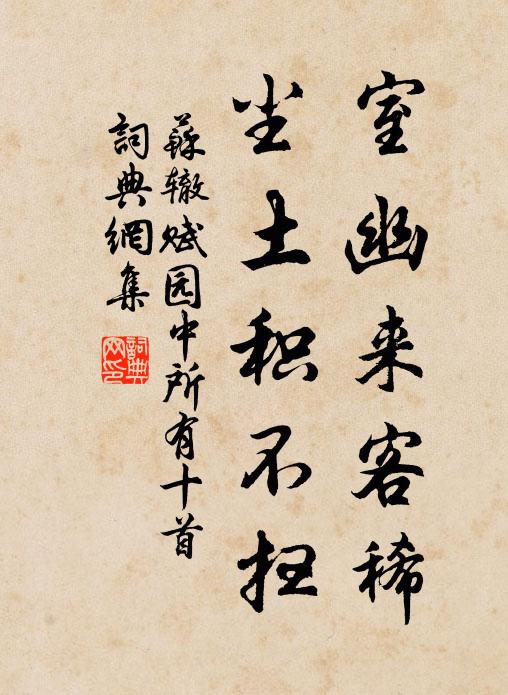 室幽来客稀
尘土积不扫
苏辙赋园中所有十首
詞典網集
詞典网印